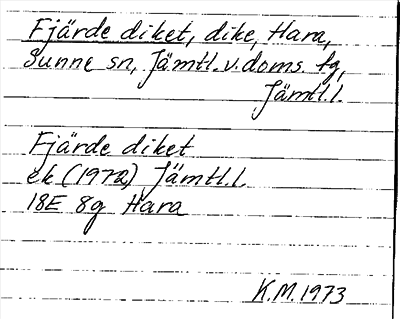 Fjärde diket, dike, Hara,
Sunne sn, Jämtl. v. doms. tg,
Jämtl.l.
Fjärde diket
ek (1972) Jämtl.l.
18E 8g Hara
K.M. 1973